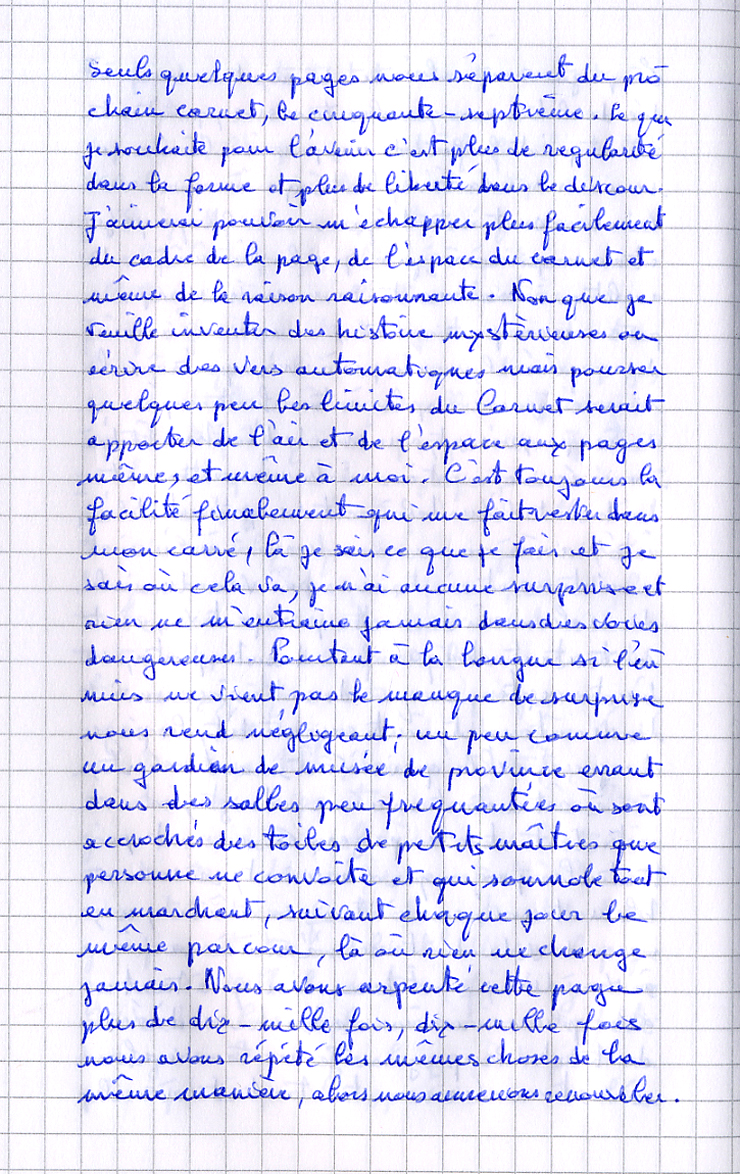 Seuls quelques pages nous séparent du pro
chain carnet, le cinquante-septième. Ce que
je souhaite pour l'avenir c'est plus de régularité
dans la forme et plus de liberté dans le discour.
J'aimerai pouvoir m'échapper plus facilement
du cadre de la page, de l'espace du carnet et
même de la raison raisonnante. Non que je
veuille inventer des histoire mystèrieuses ou
écrire des vers automatiques mais pousser
quelques peu les limites du Carnet serait
apporter de l'air et de l'espace aux pages
même, et même à moi. C'est toujours la
facilité finalement qui me fait rester dans
mon carré, là je sais ce que je fais et je
sais où cela va, je n'ai aucune surprise et
rien ne m'entraine jamais dans des voies
dangereuses. Pourtant à la longue si l'en
nuis ne vient pas le manque de surprise
nous rend négligeant; un peu comme
un gardien de musée de province errant
dans des salles peu fréquantées où sont
accrochés des toiles de petits maîtres que
personne ne convoite et qui somnole tout
en marchant, suivant chaque jour le
même parcour, là où rien ne change
jamais. Nous avons arpenté cette page
plus de dix-mille fois, dix-mille fois
nous avons répété les mêmes choses de la
même manière, alors nous aimerions renouveler.